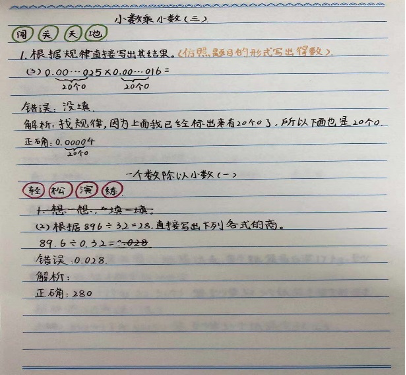 小数乘小数(三)
闯关天地
1.根据规律直接写出其结果。(仿照题目的形式写出得数)
(3) 0.00…025×0.00…016=
20个0 20个0
错误:没填
解析:找规律,因为上面我已经标出来有20个0了,所以下面也是20个0.
正确:0.00004
20个0
一个数除以小数(一)
轻松演练
1.想一想,填一填.
(2)根据896÷32=28,直接写出下列各式的商。
89.6÷0.32=0.028
错误:0.028
解析:
正确:280